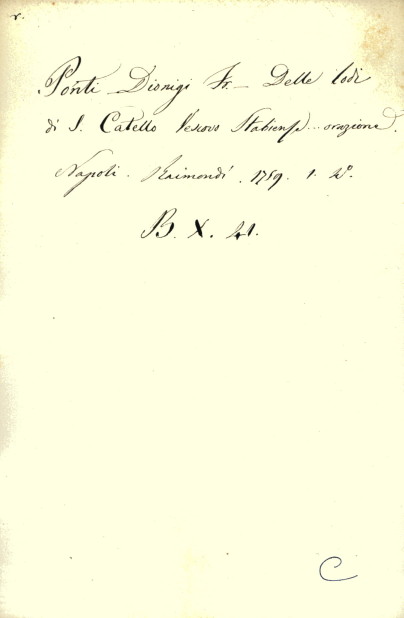 r.
Ponti Dionigi Fr. – Delle lodi
di S. Catello Vescovo Stabiense... orazione.
Napoli. Raimondi. 1759. 1.
B. X. 41.
C